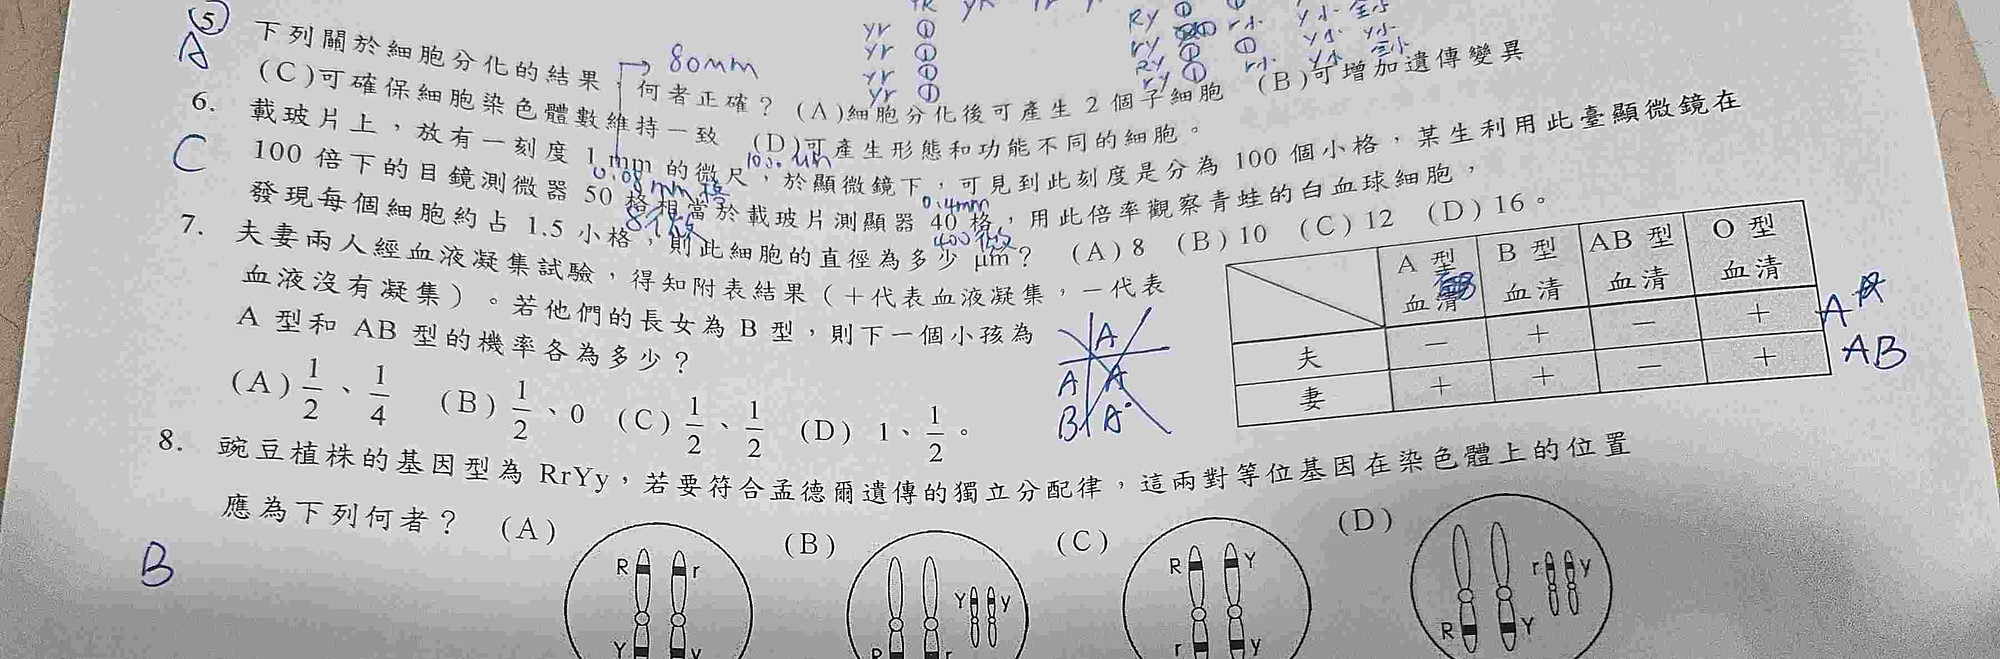 yr ① Ry ①
yr ① ry ①
yr ① Ry ①
yr ① ry ①
⑤
A
下列關於細胞分化的結果，何者正確？ (A)細胞分化後可產生 2 個子細胞 (B)可增加遺傳變異
(C)可確保細胞染色體數維持一致 (D)可產生形態和功能不同的細胞。
80mm
6. 載玻片上，放有一刻度 1 mm 的微尺，於顯微鏡下，可見到此刻度是分為 100 個小格，某生利用此臺顯微鏡在
C
100 倍下的目鏡測微器 50 格相當於載玻片測顯器 40 格，用此倍率觀察青蛙的白血球細胞，
0.4mm
發現每個細胞約占 1.5 小格，則此細胞的直徑為多少 μm？ (A) 8 (B) 10 (C) 12 (D) 16。
7. 夫妻兩人經血液凝集試驗，得知附表結果（＋代表血液凝集，－代表
血液沒有凝集）。若他們的長女為 B 型，則下一個小孩為
A 型和 AB 型的機率各為多少？
(A) 1/2、1/4 (B) 1/2、0 (C) 1/2、1/2 (D) 1、1/2。
A 型血清 B 型血清 AB 型血清 O 型血清
夫 － ＋ － ＋
妻 ＋ ＋ － ＋
A
AB
A
A A
B
8. 豌豆植株的基因型為 RrYy，若要符合孟德爾遺傳的獨立分配律，這兩對等位基因在染色體上的位置
應為下列何者？ (A) (B) (C) (D)
B
R r Y y
Y y R r
R Y r y
r y R Y